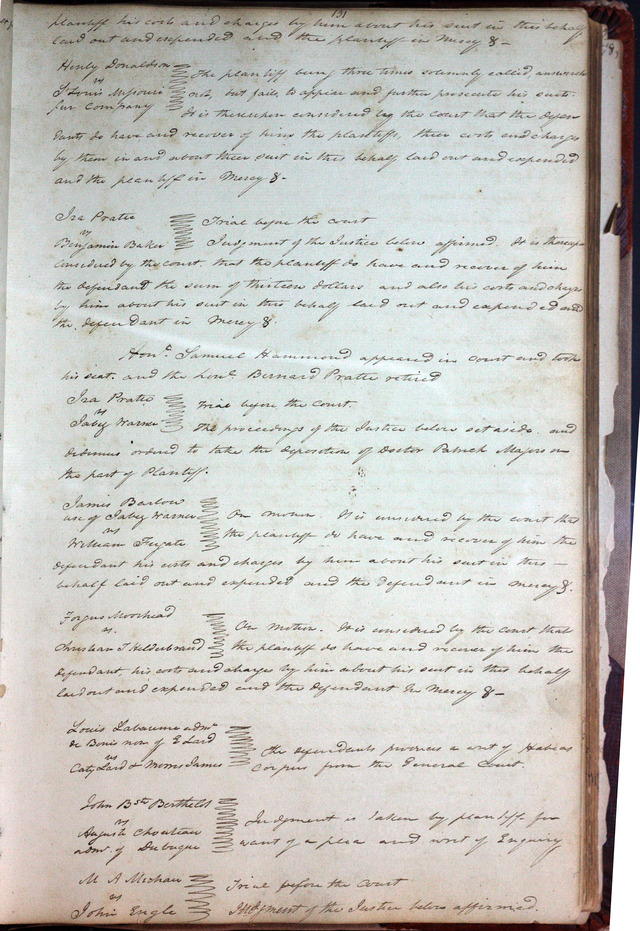 131
plaintiff his costs and charges by him about his suit in this behalf
laid out and expended and the plaintiff in Mercy &-
Henly Donaldson
vs
St Louis Missouri
fur Company
The plaintiff being three times solemnly called, answereth
not, but fails to appear and further prosecute his suit.
It is thereupon considered by the Court that the defen
dants do have and recover of him the plaintiffs, their costs and charges
by them in and about their suit in this behalf laid out and expended
and the plaintiff in Mercy &-
Ira Pratte
vs
Benjamin Baker
Trial before the court
Judgment of the Justice below affirmed. It is thereupon
Considered by the court, that the plaintiff do have and recover of him
the defendant the sum of thirteen dollars and also his costs and charges
by him about his suit in this behalf laid out and expended and
the defendant in Mercy &.
Honl. Samuel Hammond appeared in court and took
his seat, and the honl. Bernard Pratte retired
Ira Pratte
vs
Jabez Warner
Trial before the Court.
The proceedings of the Justice below set aside. and
dedimus ordered to take the deposition of Doctor Patrick Majors on
the part of Plaintiff.
James Barlow
use of Jabez Warner
vs
William Fugate
On motion It is considered by the court that
the plaintiff do have and recover of him the
defendant his costs and charges by him about his suit in this -
behalf laid out and expended and the defendant in mercy &.
Fergus Moorhead
vs.
Christian T Hildebrand
On Motion. It is considered by the Court that
the plaintiff do have and recover of him the
defendant, his costs and charges by him about his suit in this behalf
laid out and expended and the defendant In Mercy &-
Louis Labaume admr
de Bonis non of E Lard
vs
Caty Lard & Morris James
The defendants produces a writ of Habeas
Corpus from the General Court.
John Bste Bertholet
vs
August Chouteau
admr. of Dubuque
Judgment is taken by plaintiff for
want of a plea and writ of Enquiry
M A Michau
vs
John Engle
Trial before the Court
Judgment of the Justice below affirmed.